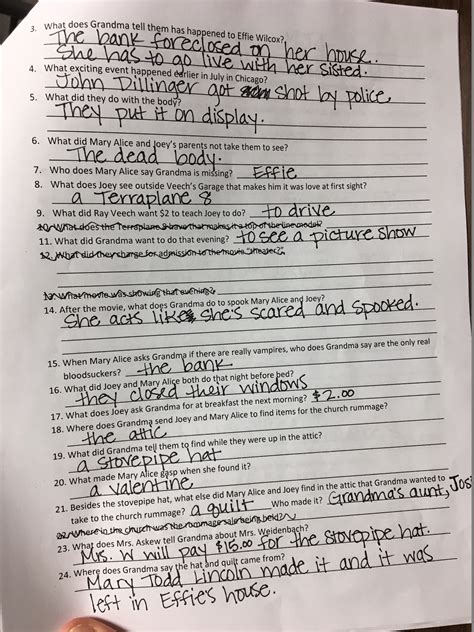 3. What does Grandma tell them has happened to Effie Wilcox?
The bank foreclosed on her house.
She has to go live with her sisted.
4. What exciting event happened earlier in July in Chicago?
John Dillinger got shot by police
5. What did they do with the body?
They put it on display.
6. What did Mary Alice and Joey's parents not take them to see?
The dead body.
7. Who does Mary Alice say Grandma is missing? Effie
8. What does Joey see outside Veech's Garage that makes him it was love at first sight?
a Terraplane 8
9. What did Ray Veech want $2 to teach Joey to do? to drive
10. What does the Terraplane 8 have that makes it a top of the line model?
11. What did Grandma want to do that evening? to see a picture show
12. What did they charge for admission to the movie "theater?"
13. What movie was showing that evening?
14. After the movie, what does Grandma do to spook Mary Alice and Joey?
She acts like she's scared and spooked.
15. When Mary Alice asks Grandma if there are really vampires, who does Grandma say are the only real
bloodsuckers? the bank
16. What did Joey and Mary Alice both do that night before bed?
they closed their windows
17. What does Joey ask Grandma for at breakfast the next morning? $2.00
18. Where does Grandma send Joey and Mary Alice to find items for the church rummage?
the attic
19. What did Grandma tell them to find while they were up in the attic?
a stovepipe hat
20. What made Mary Alice gasp when she found it?
a valentine
21. Besides the stovepipe hat, what else did Mary Alice and Joey find in the attic that Grandma wanted to
take to the church rummage? a quilt Who made it? Grandma's aunt, Jos
22. Where in the church was the rummage sale being held?
23. What does Mrs. Askew tell Grandma about Mrs. Weidenbach?
Mrs. W will pay $15.00 for the stovepipe hat.
24. Where does Grandma say the hat and quilt came from?
Mary Todd Lincoln made it and it was
left in Effie's house.